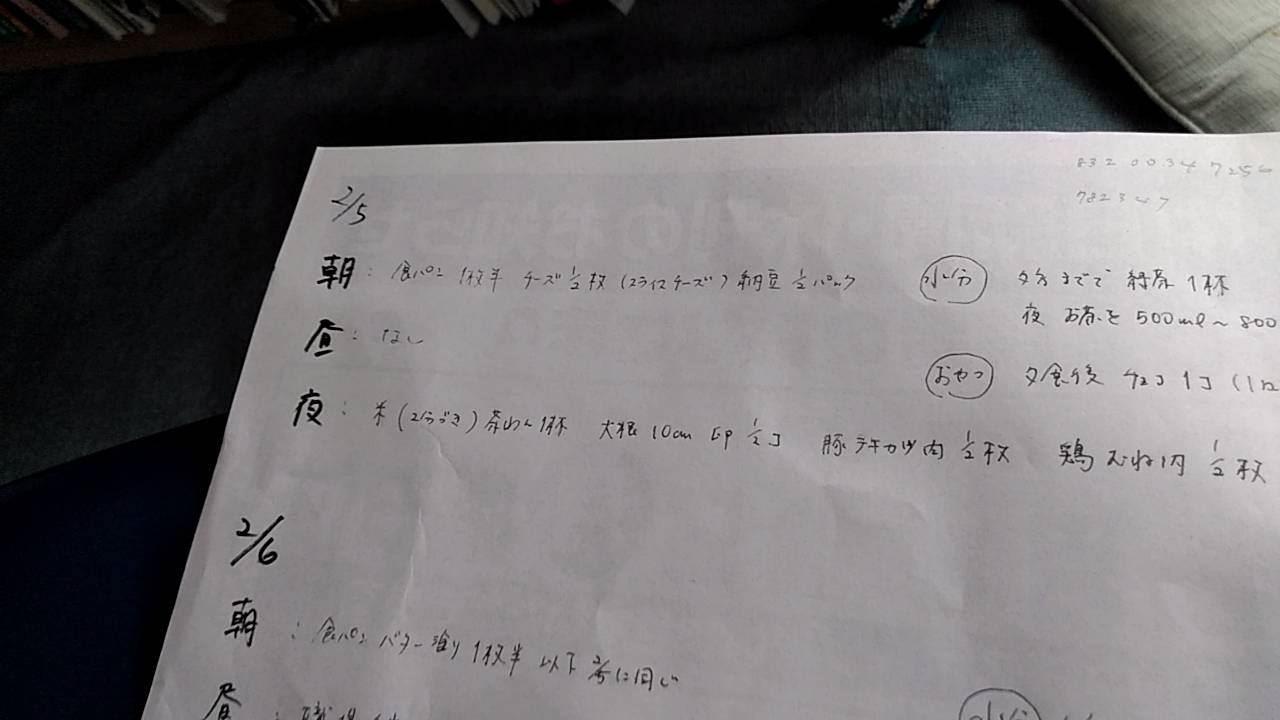 832 0034 725
782347
2/5
朝: 食パン 1枚半 チーズ 1/2枚 (スライスチーズ) 納豆 1/2パック
水分 夕方までで 緑茶 1杯
夜 お茶を 500ml～800
昼: なし
おやつ 夕食後 チョコ 1コ (1
夜: 米 (2分づき) 茶わん1杯 大根 10cm 卵 1/2コ 豚 肉 1/2枚 鶏むね肉 1/2枚
2/6
朝: 食パン バター塗り 1枚半 以下 2/5に同じ
昼: